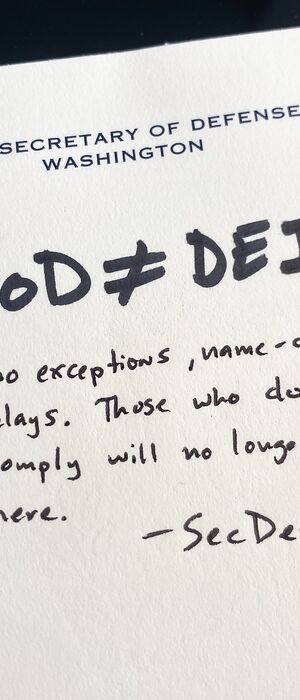 SECRETARY OF DEFENSE
WASHINGTON
oD ≠ DEI
o exceptions, name-c
lays. Those who do
omply will no longe
here.
-SecDe